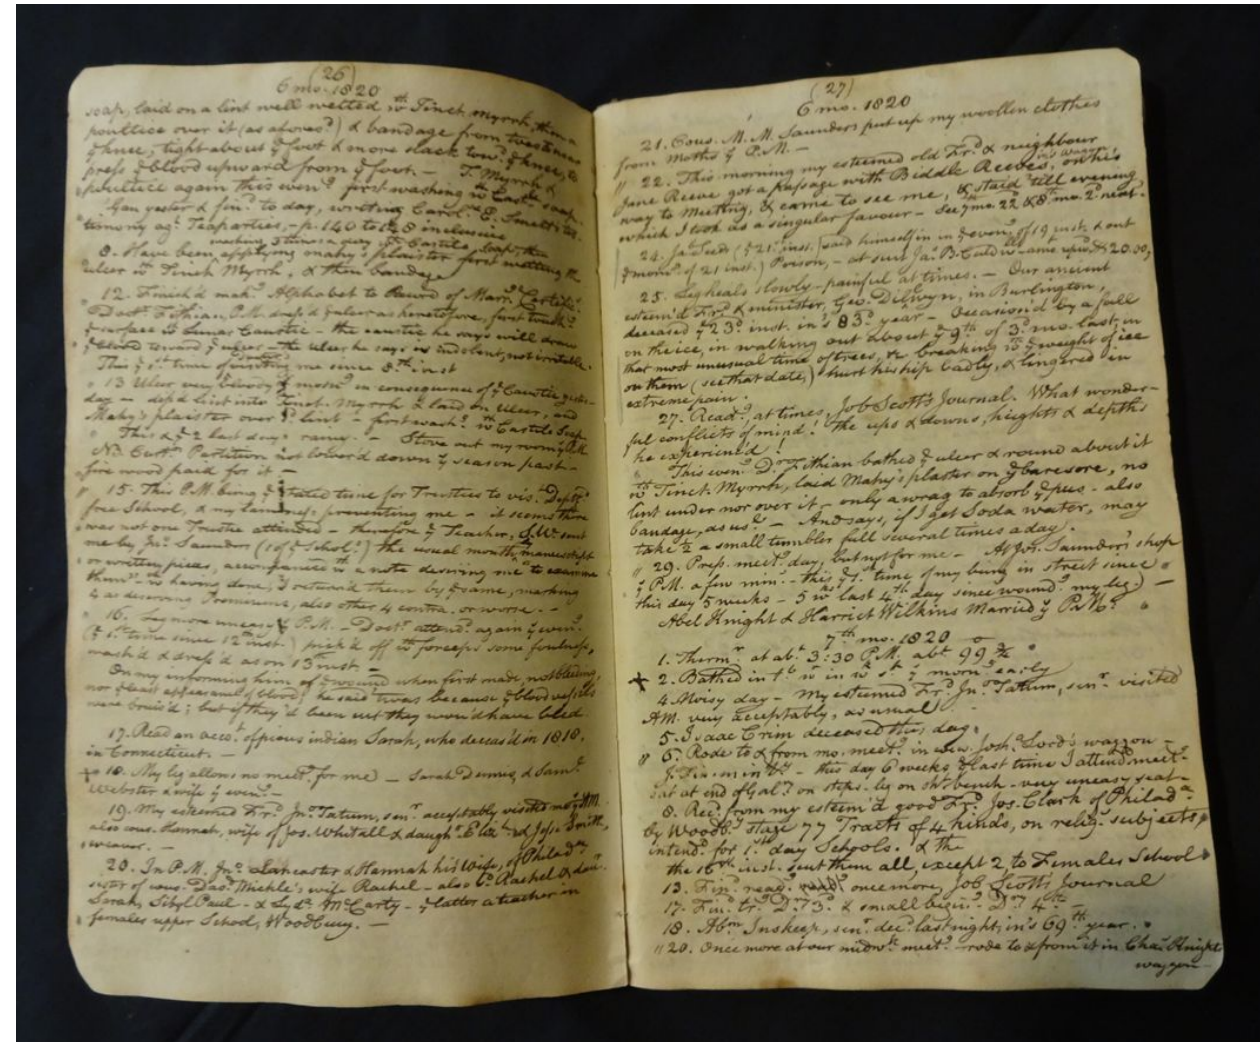 (26)
6 mo. 1820
soap, laid on a lint well wetted wth Tinct. Myrrh, then a
poultice over it (as aforesd.) & bandage from toes to near
ye knee, tight about ye foot & more slack towd. ye knee, to
press ye blood upward from ye foot. — T. Myrrh &
poultice again this eveng. first washing wth Cast. soap.
Gan yester & find. to day, writing Carole. E. Smelt's tes.
timony agt. Teaparties, - p. 140 to 148 inclusive
washing 2 times a day wth Castile soap, then
8. Have been applying mahy's plaister first wetting the
ulcer wth Tinct. Myrrh, & then bandage
" 12. Finish'd makg. Alphabet to Record of Marr. Certific.
Doctr. Fithian, P.M. dress'd ye ulcer as heretofore, first touchg.
ye surface wth Lunar Caustic - the caustic he says will draw
ye blood toward ye ulcer - the ulcer he says is indolent, not irritable.
This ye 1st. time of visiting me since 8th inst
" 13 Ulcer very ye morng. in consequence of ye Caustic yester-
day - dip'd lint into Tinct. Myrrh & laid on ulcer, and
Mahy's plaister over ye lint - first washg. wth Castile Soap.
" This & ye 2 last days rainy. - Stove out my room ye P.M.
NB. Curtn. Partition not lower'd down ye season past -
fire wood paid for it —
" 15. This P.M. being ye stated time for Trustees to vist. Deptfd.
free School, & my lameness preventing me - it seems there
was not one Trustee attended - therefore ye Teacher, S.W. sent
me by Jno. Saunders (1 of ye schols.) the usual month. manuscript
or written pieces, accompanied wth a note desiring me to examine
them - wh having done, I return'd them by ye same, marking
4 as deserving Premiums, also other 4 contra. or worse. —
" 16. Leg more uneasy ye P.M. - Doctr. attend. again ye eveng.
(ye 1st. time since 12th inst.) pick'd off wth forceps some foulness,
wash'd & dress'd as on 13 inst —
On my informing him of ye wound when first made, not bleeding,
nor ye least appearance of blood; he said 'twas because ye blood vessels
were bruis'd; but if they'd been cut they wou'd have bled.
17. Read an acco. of pious indian Sarah, who deceas'd in 1818,
in Connecticut. —
+ 18. My leg allows no meetg. for me — Sarah Dennis, & Saml.
Webster & wife ye eveng. —
19. My esteemed Frd. Jno. Tatum, senr. acceptably visited me ye AM.
also cous. Hannah, wife of Jos. Whitall & daugh. & Jos. Smith,
weaver. —
20. In P.M. Jno. Lancaster & Hannah his wife, of Philada.
sister of cous. Davd. Mickle's wife Rachel - also Rachel & daur.
Sarah, Sibyl Paul - & Lyda. McCarty - ye latter a teacher in
females upper School, Woodbury. —
(27)
6 mo. 1820
21. Cous. M. M. Saunders put up my woollen clothes
from Moths ye P.M. —
" 22. This morning my esteemed old Frd. & neighbour
Jane Reeve got a passage with Biddle Reeves, in's waggn. on his
way to Meeting, & came to see me, & staid till evening
which I took as a singular favour - See 7 mo. 22 & 8th. mo. 2d. next-
24. (ye 21st. inst.) said himself in ye eveng. of 19 inst. & out
ye morng. of 21 inst.) Poison, - at
25. Leg heals slowly - painful at times. — Our ancient
esteem'd Frd. & minister, Geo. Dilwyn, in Burlington,
deceased ye 23d. inst. in's 83d. year - Occasion'd by a fall
on the ice, in walking out about ye 9th. of 3d. mo. last; in
that most unusual time of trees, &c. breaking wth ye weight of ice
on them (see that date,) hurt his hip badly, & lingered in
extreme pain.
27. Readg. at times, Job Scott's Journal. What wonder-
ful conflicts of mind! the ups & downs, heights & depths
he experienc'd!
" This eveng. Dr. Fithian bathed ye ulcer & round about it
wth Tinct. Myrrh, laid Mahy's plaster on ye bare sore, no
lint under nor over it - only a wrag to absorb ye pus - also
bandage, as usl. — And says, if I get Soda water, may
take ½ a small tumbler full several times a day.
" 29. Prep. meetg. day, but not for me - At Jos. Saunders's shop
ye P.M. a few min. - this ye 1st. time of my being in street since
this day 5 weeks - 5 wks last 4th. day since woundg. my leg.) —
Abel Knight & Harriet Wilkins Married ye P.M.
7th mo. 1820
1. Thermr. at abt. 3:30 P.M. abt. 99 ¾
+ 2. Bathed in tb. w in w st. ye morng. early
4. Noisy day - My esteemed Frd. Jno. Tatum, senr. visited
AM. very acceptably, as usual
5. Isaac Crim deceased this day.
" 6. Rode to & from mo. meetg. in cous. Josh. Lord's waggon —
- this day 6 weeks ye last time I attendd. meetg. -
sat at end of Gal. on steps - leg on sht. bench - very uneasy seat -
8. Recd. from my esteem'd good Frd. Jos. Clark of Philada.
by Woodby. stage 77 Tracts of 4 kinds, on relig. subjects,
intendd. for 1st day Schools. & the
the 16th inst. sent them all, except 2 to Females School
13. Find. readg. once more, Job Scott's Journal
17. Find. tr. Dr. 73. & small begin. Dr. 4th —
18. Abm. Inskeep, senr. decd. last night, in's 69th year.
" 20. Once more at our midwk. meetg. - rode to & from it in Chas. Knight
waggon —